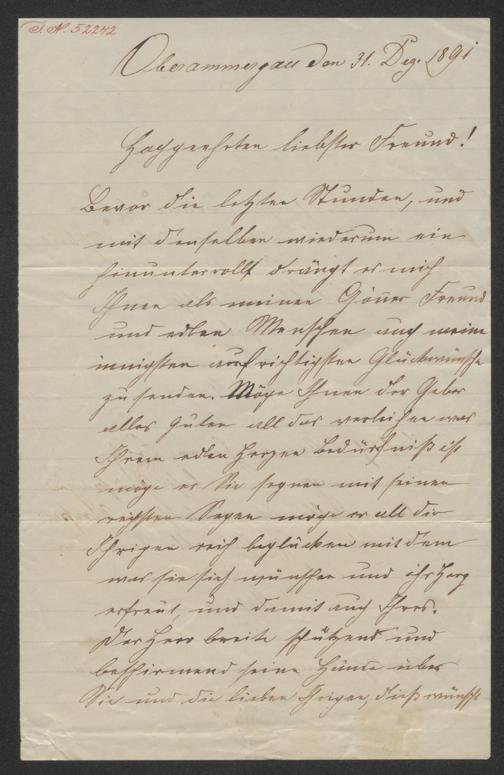 I. N. 52242
Oberammergau den 31. Dez. 1891
Hochgeehrter liebster Freund!
Bevor die letzten Stunden, und
mit denselben wiederum ein
hinunterrollt drängt es mich
Ihnen als meinen Gönner Freund
und edlen Menschen auch meine
innigsten aufrichtigsten Glückwünsche
zu senden. Möge Ihnen der Geber
alles Guten all das verleihen was
Ihrem edlen Herzen Bedürfniß ist
möge er Sie segnen mit seinen
reichsten Segen möge er all die
Ihrigen reich beglücken mit dem
was sie sich wünschen und ihr Herz
erfreut und damit auch Ihres.
Der Herr breite schützend und
beschirmend seine Hände über
Sie und die lieben Ihrigen, dieß wünscht